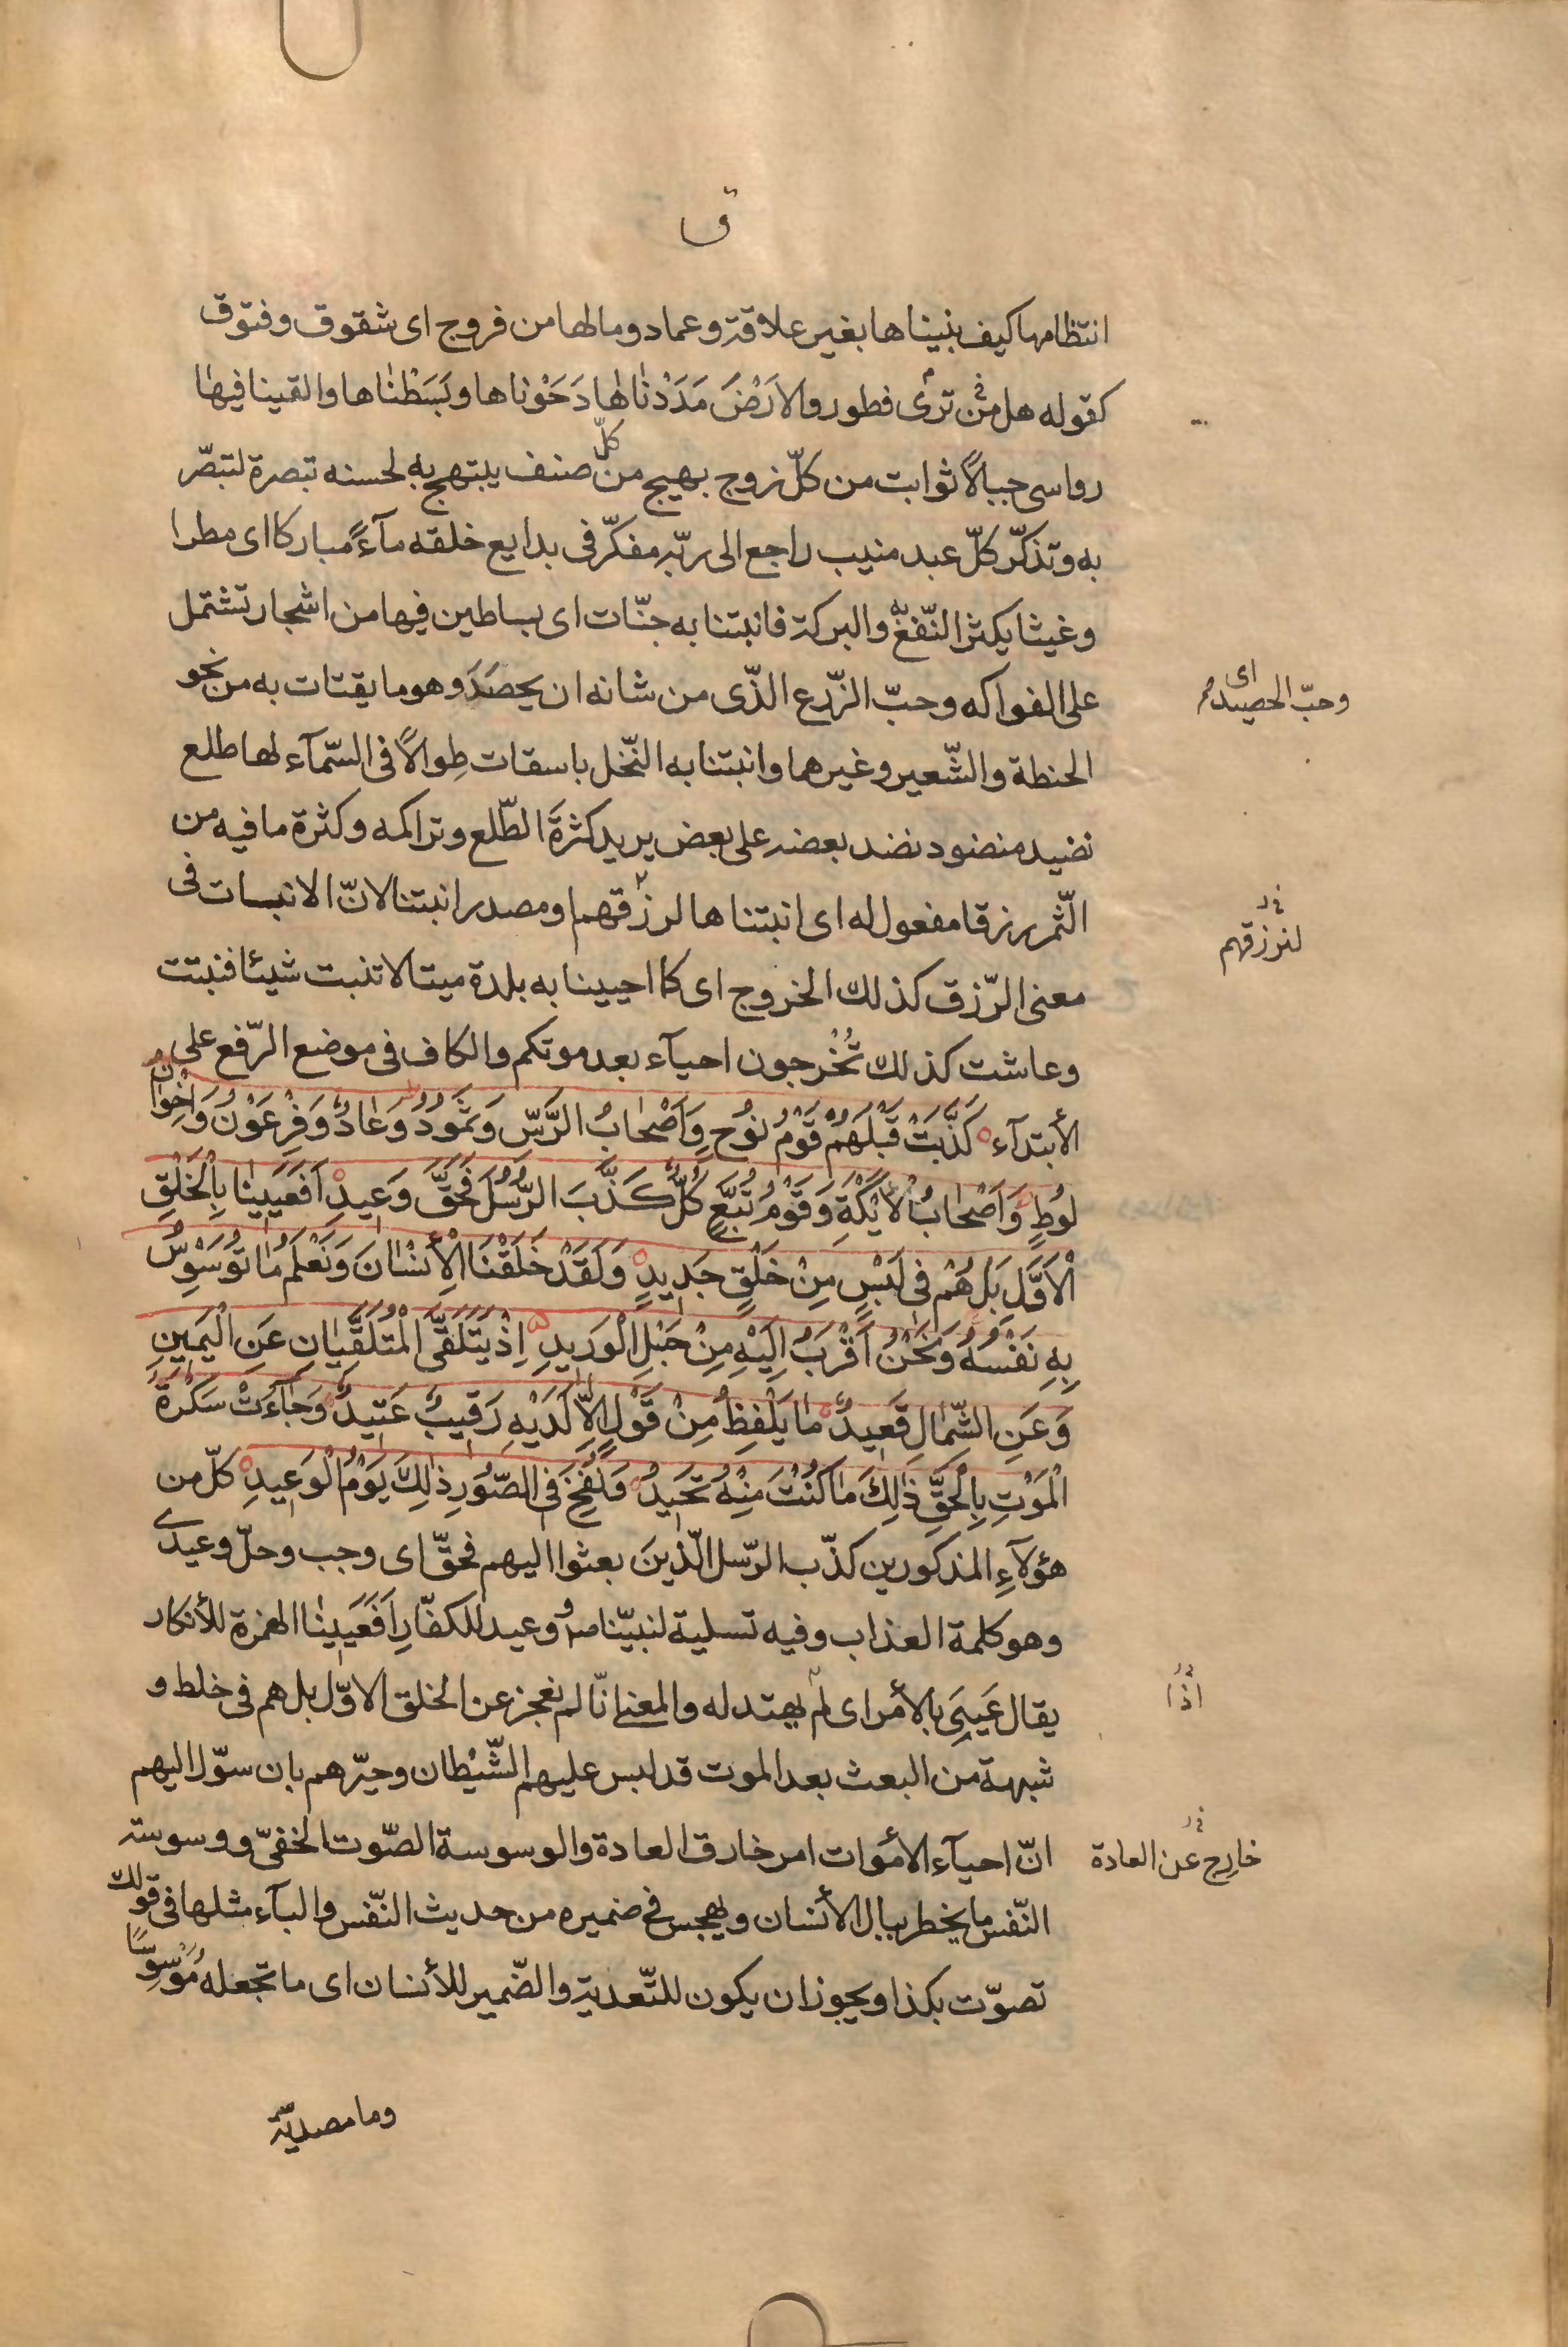 ق
انتظامها كيف بنيناها بغير علاقة وعماد ومالها من فروج اى شقوق وفتوق
كقوله هل ترى من فطور والارَْضَ مَدَدْنٰاهٰا دَحَوْناها وبَسَطْنٰاها والقينا فيهٰا
رواسى جبالاً ثوابت من كلّ زوج بهيج من كلّ صنف يبتهج به لحسنه تبصرة لتبصّر
به وتذكّر كلّ عبد منيب راجع الى ربّه مفكّر فى بدايع خلقه مآءً مباركا اى مطرا
وغيثا يكثر النّفع والبركة فانبتنا به جنّات اى بساطين فيها من اشجار تشتمل
على الفواكه وحبّ الزّرع الذّى من شانه ان يحصَدَ وهو ما يقتات به من نحو
وحبّ الحصيد اى
الحنطة والشّعير وغيرهما وانبتنا به النّخل باسقات طِوالاً فى السّمآء لها طلع
نضيد منضود نضد بعضه على بعض يريد كثرةَ الطّلع وتراكمه وكثرة ما فيه من
الثّمر رزقا مفعول له اى انبتناها لرزقهم او مصدر انبتنا لانّ الانبات فى
لنرزقهم
معنى الرّزق كذلك الخروج اى كما احيينا به بلدة ميتا لا تنبت شيئا فنبتت
وعاشت كذلك تُخْرجون احيآء بعد موتكم والكاف فى موضع الرّفع على
الأبتدآء كَذَّبَتْ قَبْلَهُمْ قَوْمُ نُوُحٍ وَاَصْحٰابُ الرَّسِّ وَثَمُوُدُ وَعٰادٌ وَفِرْعَوْنُ وَاِخْوٰانُ
لُوُطٍ وَاَصْحٰابُ الْاَيْكَةِ وَقَوْمُ تُبَّعٍ كُلٌّ كَذَّبَ الرُّسُلَ فَحَقَّ وَعيدِ اَفَعَيينٰا بِالْخَلْقِ
الْاَوَّلِ بَلْ هُمْ فى لَبْسٍ مِنْ خَلْقٍ جَديدٍ وَلَقَدْ خَلَقْنَا الْأِنْسٰانَ وَنَعْلَمُ مٰا تُوَسْوِسُ
بِهِ نَفْسُهُ وَنَحْنُ اَقْرَبُ اِلَيْهِ مِنْ حَبْلِ الْوَريدِ اِذْ يَتَلَقَّى الْمُتَلَقِّيٰانِ عَنِ الْيَمينِ
وَعَنِ الشِّمٰالِ قَعيدٌ مٰا يَلْفِظُ مِنْ قَوْلٍ اِلاّٰ لَدَيْهِ رَقيبٌ عَتيدٌ وَجٰآءَتْ سَكْرَةُ
الْمَوْتِ بِالْحَقِّ ذٰلِكَ مٰا كُنْتَ مِنْهُ تَحيدُ وَنُفِخَ فى الصُّوُرِ ذٰلِكَ يَوْمُ الْوَعيدِ كلّ من
هؤلآءِ المذكورين كذّب الرّسل الّذينَ بعثوا اليهم فحقّ اى وجب وحلّ وعيدى
وهو كلمة العذاب وفيه تسلية لنبيّنا ص ووعيد للكفّارِ اَفَعَيينٰا الهمزة للأنكار
يقال عَيِىَ بالأمر اى لم يهتد له والمعنى انّا لم نعجز عن الخلق الاوّل بل هم فى خلط و
اذا
شبهة من البعث بعد الموت قد لبس عليهم الشّيْطان وحيّرهم بان سوّل اليهم
انّ احيآء الأموات امر خارق العادة والوسوسة الصّوت الخفىّ ووسوسة
خارج عن العادة
النّفس ما يخطر ببال الأنسان ويهجس فى ضميره من حديث النّفس والبآء مثلها فى قولك
تصوّت بكذا ويجوز ان يكون للتّعدية والضّمير للأنسان اى ما تجعله مُوَسْوِسًا
وما مصدريّة